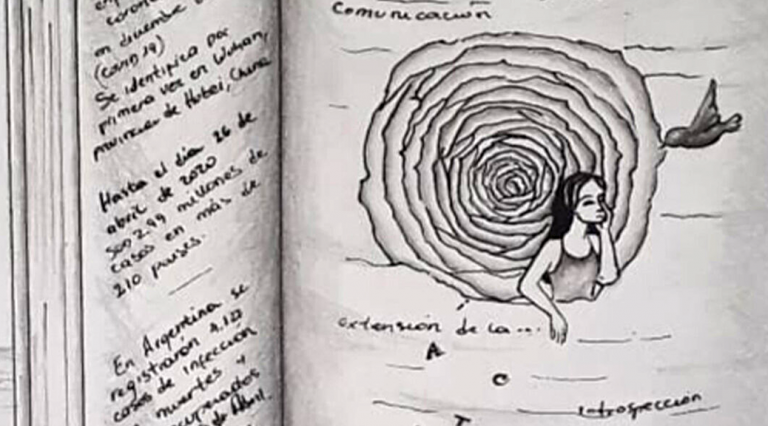 en diciembre
(covid 19)
Se identifico por
primera vez en Wuhan,
provincia de Hubei, China
Hasta el día 26 de
abril de 2020
son 2,99 millones de
casos en más de
210 países.
En Argentina se
registraron
casos de infección
muertes y
Abril.
Comunicación
extensión de la...
A
C
I
introspección